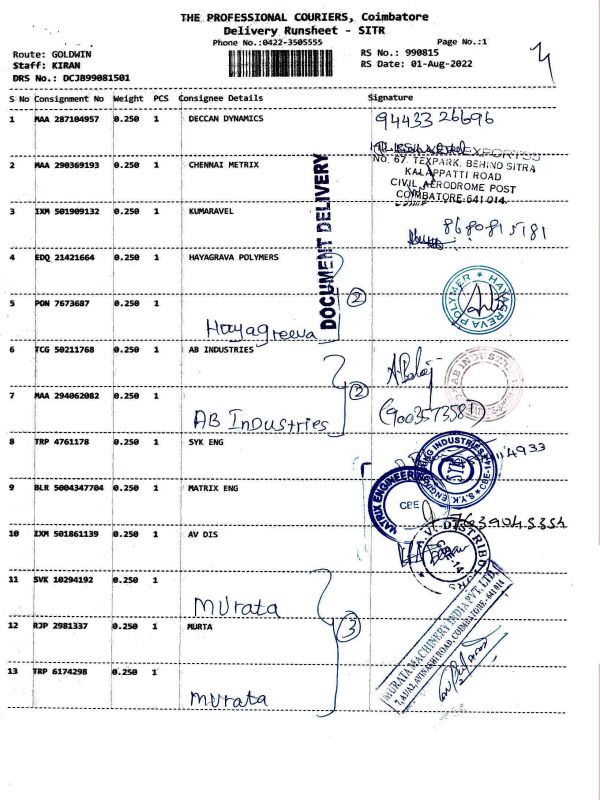 THE PROFESSIONAL COURIERS, Coimbatore
Delivery Runsheet - SITR
Phone No.:0422-3505555
Page No.:1
Route: GOLDWIN
RS No.: 990815
Staff: KIRAN
RS Date: 01-Aug-2022
DRS No.: DCJB99081501
S No Consignment No Weight PCS Consignee Details Signature
1 MAA 287104957 0.250 1 DECCAN DYNAMICS 94433 26696
2 MAA 290369193 0.250 1 CHENNAI METRIX
NO. 67, TEXPARK, BEHIND SITRA
KALAPPATTI ROAD
CIVIL AERODROME POST
COIMBATORE-641 014.
DOCUMENT DELIVERY
3 IXM 501909132 0.250 1 KUMARAVEL 8680815181
4 EDQ 21421664 0.250 1 HAYAGRAVA POLYMERS
HAYAGREEVA POLYMER
5 PON 7673687 0.250 1
Hayagreeva 2
6 TCG 50211768 0.250 1 AB INDUSTRIES
7 MAA 294062082 0.250 1
AB Industries 2
8 TRP 4761178 0.250 1 SYK ENG
S.Y.K. ENGINEERING INDUSTRIES
9 BLR 5004347704 0.250 1 MATRIX ENG
MATRIX ENGINEERING
CBE
10 IXM 501861139 0.250 1 AV DIS
11 SVK 10294192 0.250 1
Murata
12 RJP 2981337 0.250 1 MURTA 3
MURATA MACHINERY INDIA PVT. LTD.
AVINASHI ROAD, COIMBATORE - 641 014
13 TRP 6174298 0.250 1
Murata